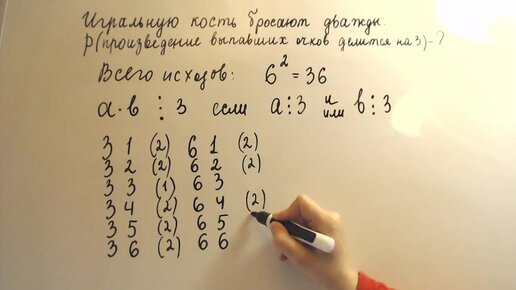 Игральную кость бросают дважды.
P(произведение выпавших очков делится на 3)-?
Всего исходов: 6² = 36
a·b ⋮ 3 если a⋮3 и или b⋮3
3 1 (2) 6 1 (2)
3 2 (2) 6 2 (2)
3 3 (1) 6 3
3 4 (2) 6 4 (2)
3 5 (2) 6 5
3 6 (2) 6 6